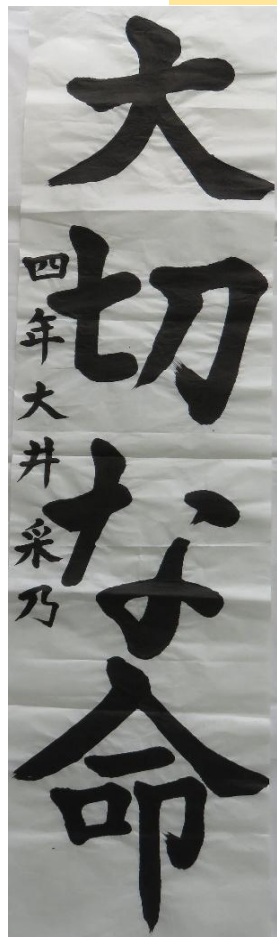 大切な命
四年大井采乃